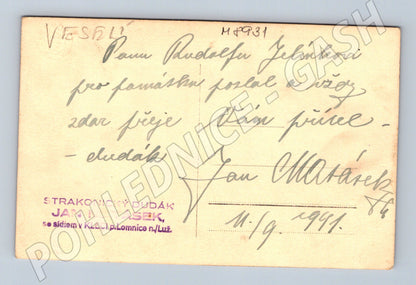 VESELÍ
M 8931
Panu Rudolfu Jelínkovi
pro památku poslal a vždy
zdar přeje Vám přítel
dudák
Jan Matásek
11/9. 1941.
STRAKONICKÝ DUDÁK
JAN MATÁSEK,
se sídlem v p. Lomnice n./Luž.
POHLEDNICE - GASH